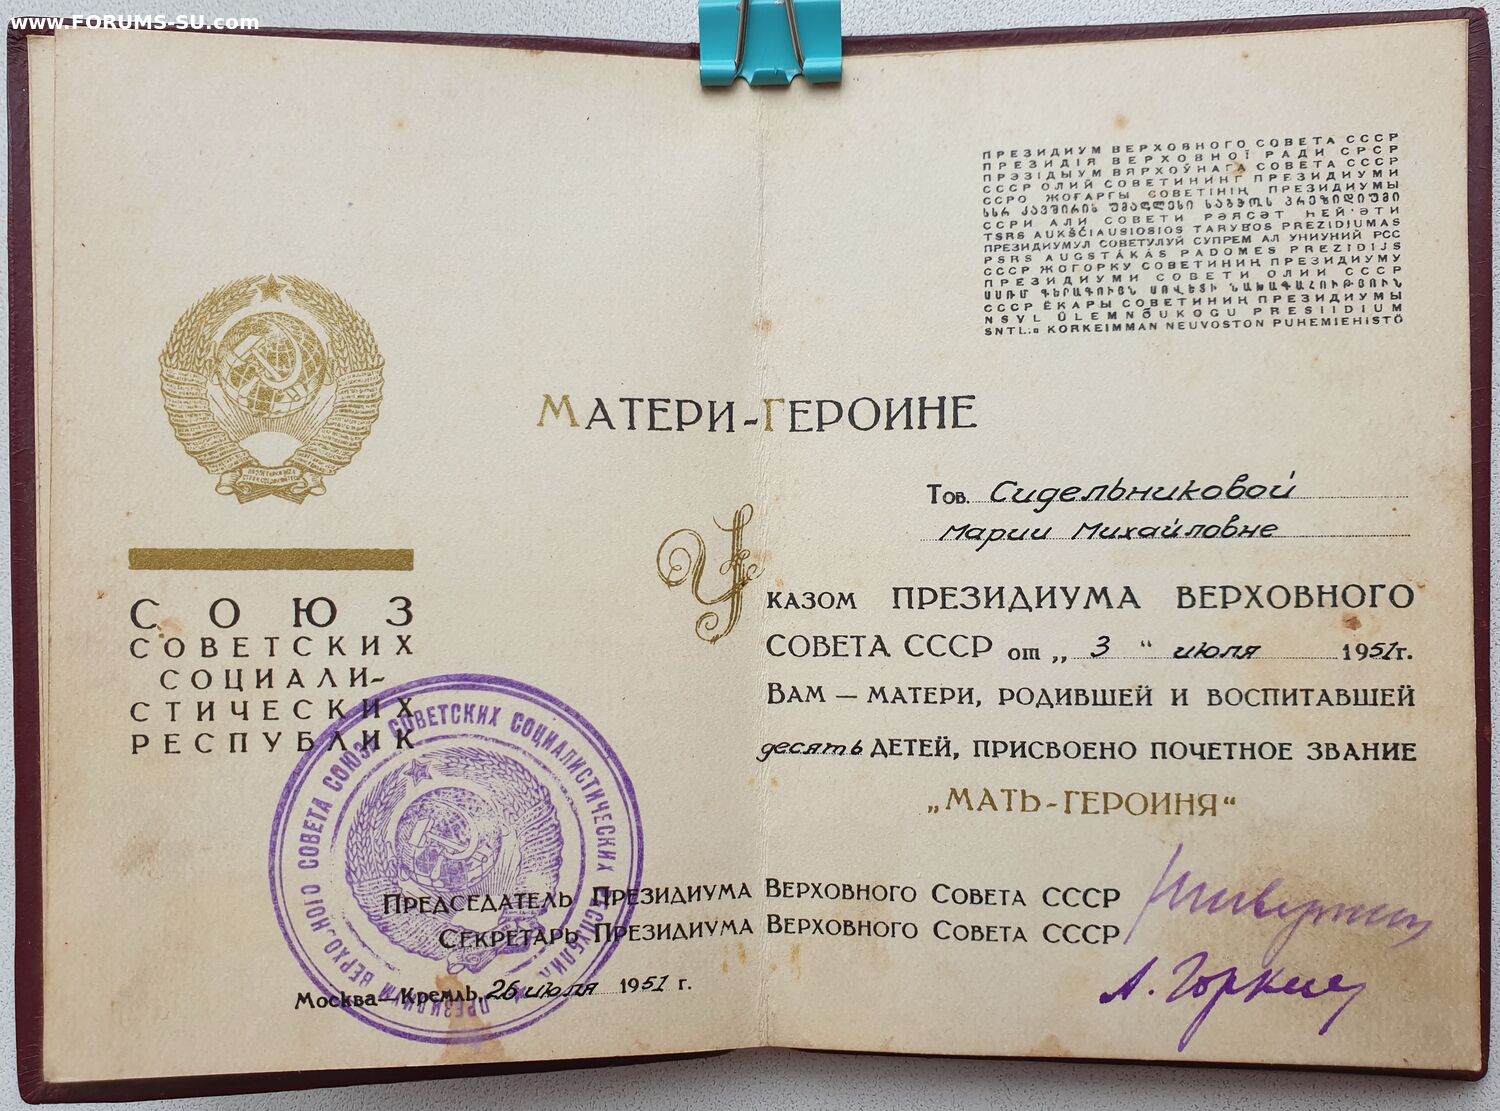 www.FORUMS-SU.com
ПРЕЗИДИУМ ВЕРХОВНОГО СОВЕТА СССР
ПРЕЗИДІЯ ВЕРХОВНОЇ РАДИ СРСР
ПРЭЗІДЫУМ ВЯРХОЎНАГА СОВЕТА СССР
СССР ОЛИЙ СОВЕТИНИНГ ПРЕЗИДИУМИ
ССРО ЖОҒАРҒЫ СОВЕТІНІҢ ПРЕЗИДИУМЫ
სსრ კავშირის უმაღლესი საბჭოს პრეზიდიუმი
ССРИ АЛИ СОВЕТИ РӘЯСӘТ ҺЕЙ'ӘТИ
TSRS AUKŠČIAUSIOSIOS TARYBOS PREZIDIUMAS
ПРЕЗИДИУМУЛ СОВЕТУЛУЙ СУПРЕМ АЛ УНИУНИЙ РСС
PSRS AUGSTĀKĀS PADOMES PREZIDIJS
СССР ЖОГОРКУ СОВЕТИНИҢ ПРЕЗИДИУМУ
ПРЕЗИДИУМИ СОВЕТИ ОЛИИ СССР
ՍՍՌՄ ԳԵՐԱԳՈՒՅՆ ՍՈՎԵՏԻ ՆԱԽԱԳԱՀՈՒԹՅՈՒՆ
СССР ЁКАРЫ СОВЕТИНИҢ ПРЕЗИДИУМЫ
NSVL ÜLEMNÕUKOGU PRESIIDIUM
SNTL:n KORKEIMMAN NEUVOSTON PUHEMIEHISTÖ
МАТЕРИ-ГЕРОИНЕ
Тов. Сидельниковой
Марии Михайловне
Указом ПРЕЗИДИУМА ВЕРХОВНОГО
СОВЕТА СССР от „ 3 “ июля 1951г.
Вам — матери, родившей и воспитавшей
десять детей, присвоено почетное звание
„МАТЬ-ГЕРОИНЯ“
Председатель Президиума Верховного Совета СССР
Секретарь Президиума Верховного Совета СССР
А. Горкин
Москва—Кремль, 26 июля 1951 г.
СОЮЗ
СОВЕТСКИХ
СОЦИАЛИ-
СТИЧЕСКИХ
РЕСПУБЛИК
ПРЕЗИДИУМ ВЕРХО НОГО СОВЕТА СОЮЗА СОВЕТСКИХ СОЦИАЛИСТИЧЕСКИХ РЕСПУБЛИК